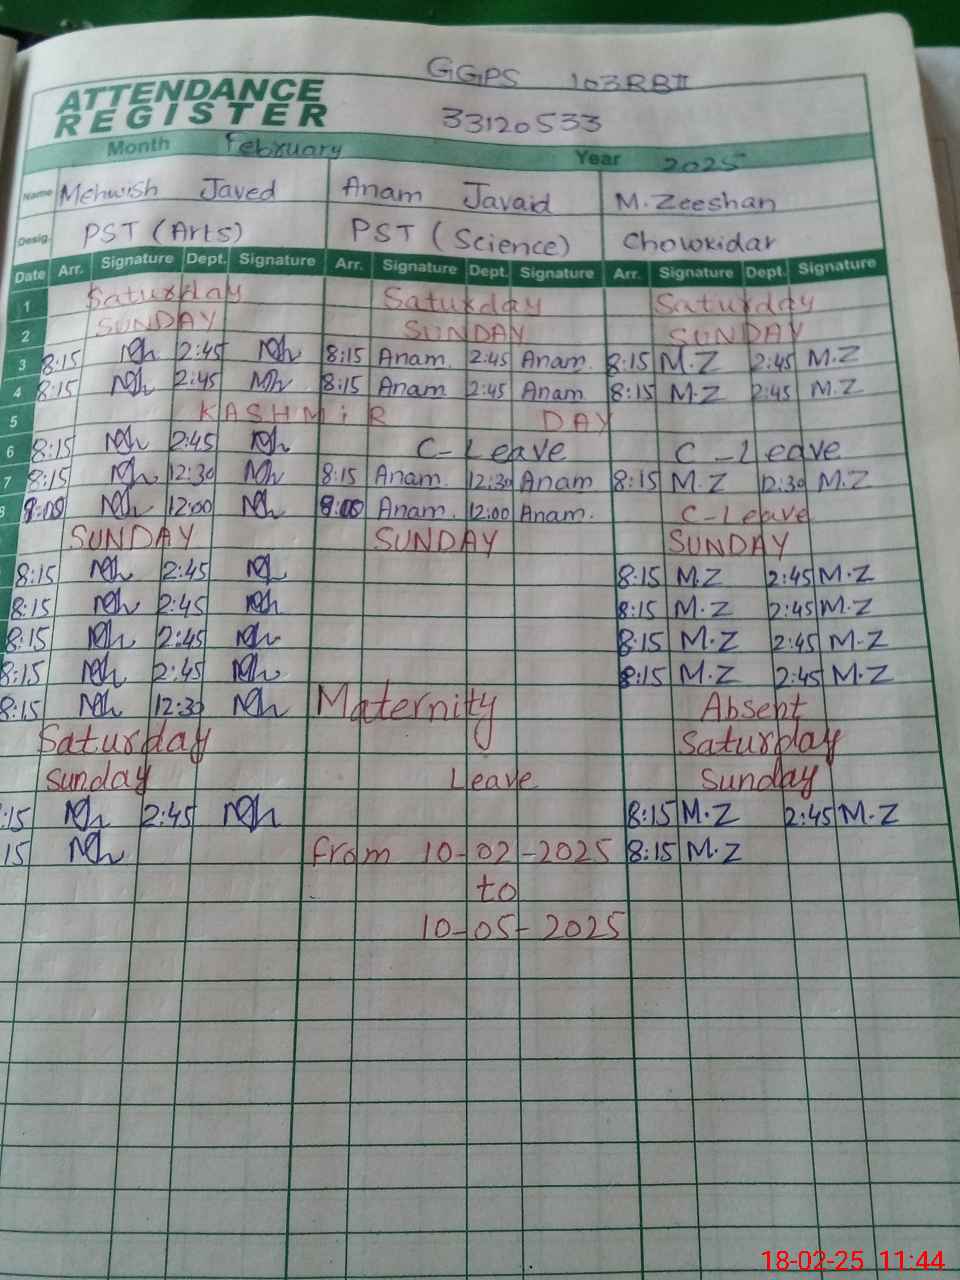 GGPS 103RBII
ATTENDANCE
REGISTER
33120533
Month February Year 2025
Name Mehwish Javed Anam Javaid M.Zeeshan
Desig. PST (Arts) PST (Science) Chowkidar
Date Arr. Signature Dept. Signature Arr. Signature Dept. Signature Arr. Signature Dept. Signature
1 Saturday Saturday Saturday
2 SUNDAY SUNDAY SUNDAY
3 8:15 2:45 8:15 Anam. 2:45 Anam. 8:15 M.Z 2:45 M.Z
4 8:15 2:45 8:15 Anam 2:45 Anam 8:15 M.Z 2:45 M.Z
5 KASHMiR DAY
6 8:15 2:45 C-Leave C-Leave
7 8:15 12:30 8:15 Anam. 12:30 Anam 8:15 M.Z 12:30 M.Z
8 8:00 12:00 8:00 Anam. 12:00 Anam. C-Leave
SUNDAY SUNDAY SUNDAY
8:15 2:45 8:15 M.Z 2:45 M.Z
8:15 2:45 8:15 M.Z 2:45 M.Z
8:15 2:45 8:15 M.Z 2:45 M.Z
8:15 2:45 8:15 M.Z 2:45 M.Z
8:15 12:30 Maternity Absent
Saturday Saturday
Sunday Leave Sunday
:15 2:45 8:15 M.Z 2:45 M.Z
15 from 10-02-2025 8:15 M.Z
to
10-05-2025
18-02-25 11:44